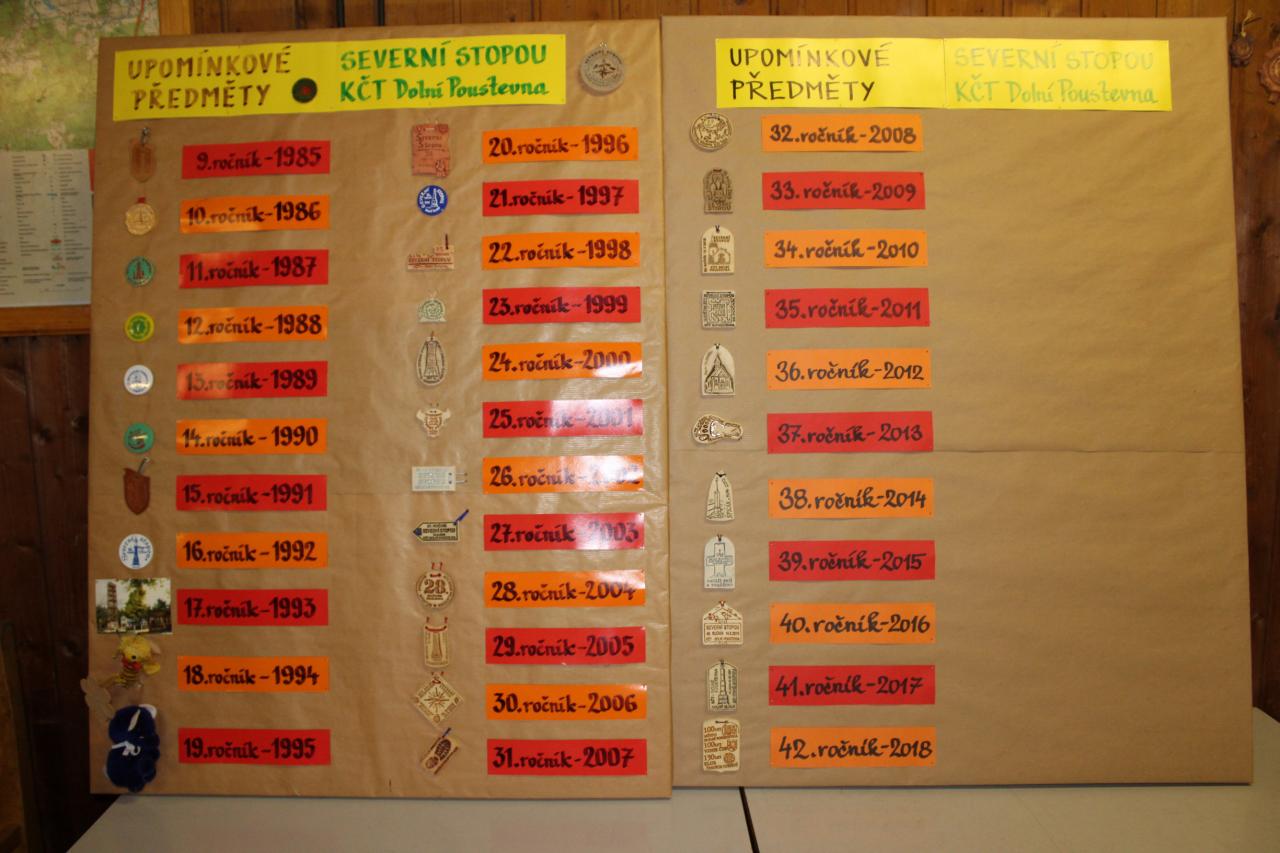 UPOMÍNKOVÉ
PŘEDMĚTY
SEVERNÍ STOPOU
KČT Dolní Poustevna
9.ročník-1985
10.ročník-1986
11.ročník-1987
12.ročník-1988
13.ročník-1989
14.ročník-1990
15.ročník-1991
16.ročník-1992
17.ročník-1993
18.ročník-1994
19.ročník-1995
20.ročník-1996
21.ročník-1997
22.ročník-1998
23.ročník-1999
24.ročník-2000
25.ročník-2001
26.ročník-2002
27.ročník-2003
28.ročník-2004
28.
29.ročník-2005
30.ročník-2006
31.ročník-2007
UPOMÍNKOVÉ
PŘEDMĚTY
SEVERNÍ STOPOU
KČT Dolní Poustevna
32.ročník-2008
33.ročník-2009
34.ročník-2010
35.ročník-2011
36.ročník-2012
37.ročník-2013
38.ročník-2014
39.ročník-2015
40.ročník-2016
SEVERNÍ STOPOU
41.ročník-2017
42.ročník-2018